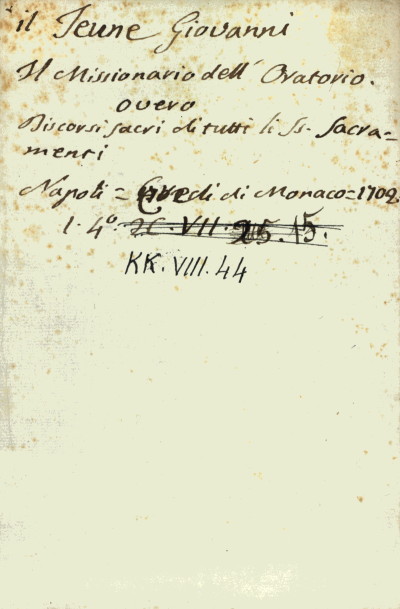 il Jeune Giovanni
Il Missionario dell' Oratorio.
overo
Discorsi sacri di tutti li Ss. Sacra=
menti
Napoli = Eredi di Monaco = 1702.
1. 4°. VII. 15.
KK. VIII. 44